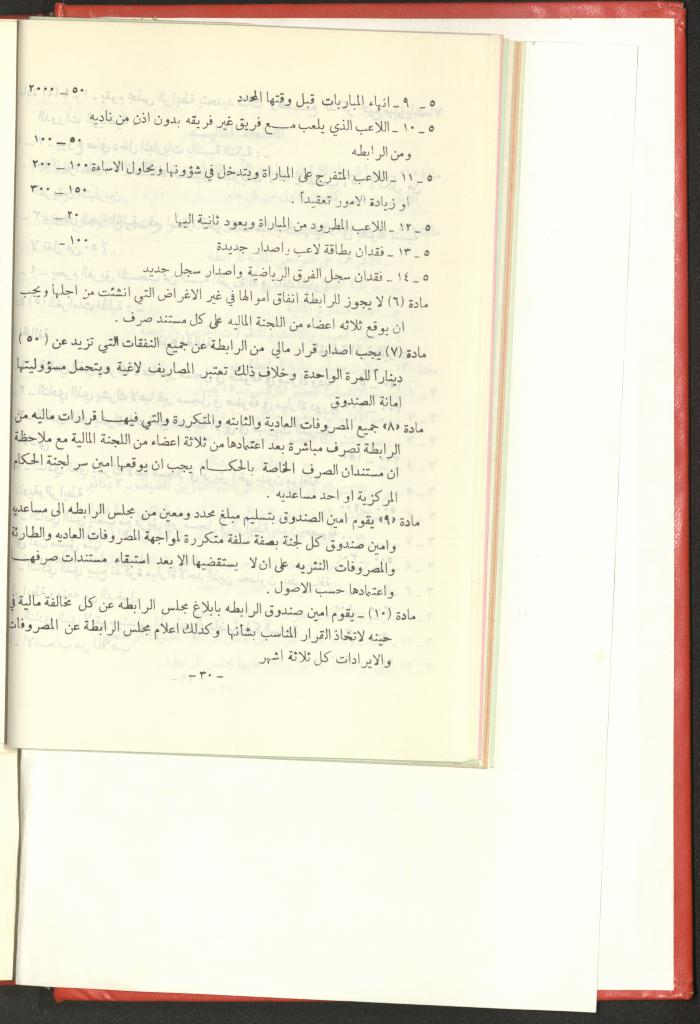 ٥ ـ ٩ ـ انهاء المباريات قبل وقتها المحدد ٥٠ ـ ٢٠٠٠
٥ ـ ١٠ ـ اللاعب الذي يلعب مع فريق غير فريقه بدون اذن من ناديه
ومن الرابطه ٥٠ ـ ١٠٠
٥ ـ ١١ ـ اللاعب المتفرج على المباراة ويتدخل في شؤونها ويحاول الاساءة ١٠٠ ـ ٢٠٠
او زيادة الامور تعقيداً . ١٥٠ ـ ٣٠٠
٥ ـ ١٢ ـ اللاعب المطرود من المباراة ويعود ثانية اليها ٢٠ ـ
٥ ـ ١٣ ـ فقدان بطاقة لاعب واصدار جديدة ١٠٠ -
٥ ـ ١٤ ـ فقدان سجل الفرق الرياضية واصدار سجل جديد
مادة (٦) لا يجوز للرابطة انفاق اموالها في غير الاغراض التي انشئت من اجلها ويجب
ان يوقع ثلاثه اعضاء من اللجنة الماليه على كل مستند صرف .
مادة (٧) يجب اصدار قرار مالي من الرابطة عن جميع النفقات التي تزيد عن (٥٠)
ديناراً للمرة الواحدة وخلاف ذلك تعتبر المصاريف لاغية ويتحمل مسؤوليتها
امانة الصندوق
مادة «٨» جميع المصروفات العادية والثابته والمتكررة والتي فيها قرارات ماليه من
الرابطة تصرف مباشرة بعد اعتمادها من ثلاثة اعضاء من اللجنة المالية مع ملاحظة
ان مستندان الصرف الخاصة بالحكام يجب ان يوقعها امين سر لجنة الحكام
المركزية او احد مساعديه .
مادة «٩» يقوم امين الصندوق بتسليم مبلغ محدد ومعين من مجلس الرابطه الى مساعديه
وامين صندوق كل لجنة بصفة سلفة متكررة لمواجهة المصروفات العاديه والطارئة
والمصروفات النثريه على ان لا يستقضيها الا بعد استبقاء مستندات صرفها
واعتمادها حسب الاصول .
مادة (١٠) ـ يقوم امين صندوق الرابطه بابلاغ مجلس الرابطه عن كل مخالفة مالية في
حينه لاتخاذ القرار المناسب بشأنها وكذلك اعلام مجلس الرابطة عن المصروفات
والايرادات كل ثلاثة اشهر
- ٣٠ -